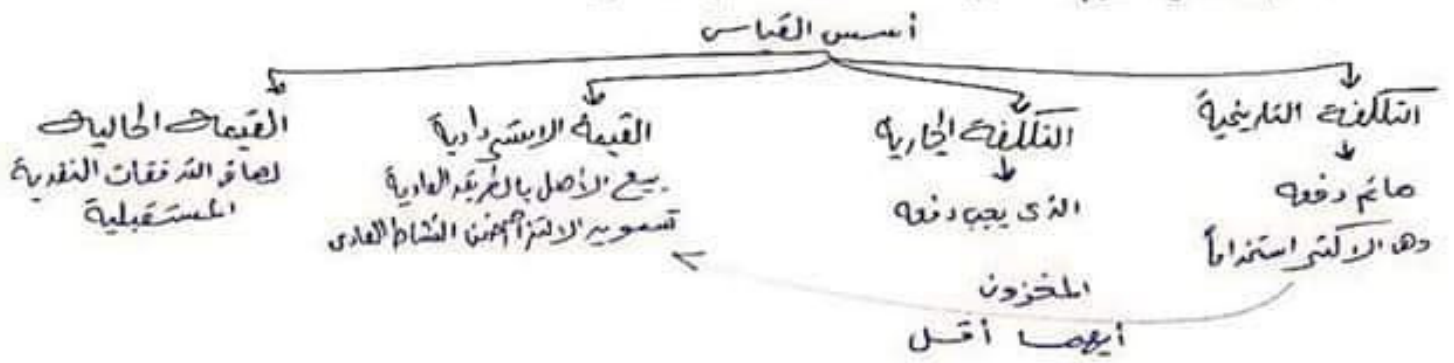 أسس القياس
التكلفة التاريخية
ما تم دفعه
وها الاكثر استخداماً
التكلفة الجارية
الذى يجب دفعه
القيمة الاستردادية
بيع الأصل بالطريقة العادية
تسوية الالتزام ضمن النشاط العادى
القيمة الحالية
لصافى التدفقات النقدية
المستقبلية
المخزون
أيهما أقل